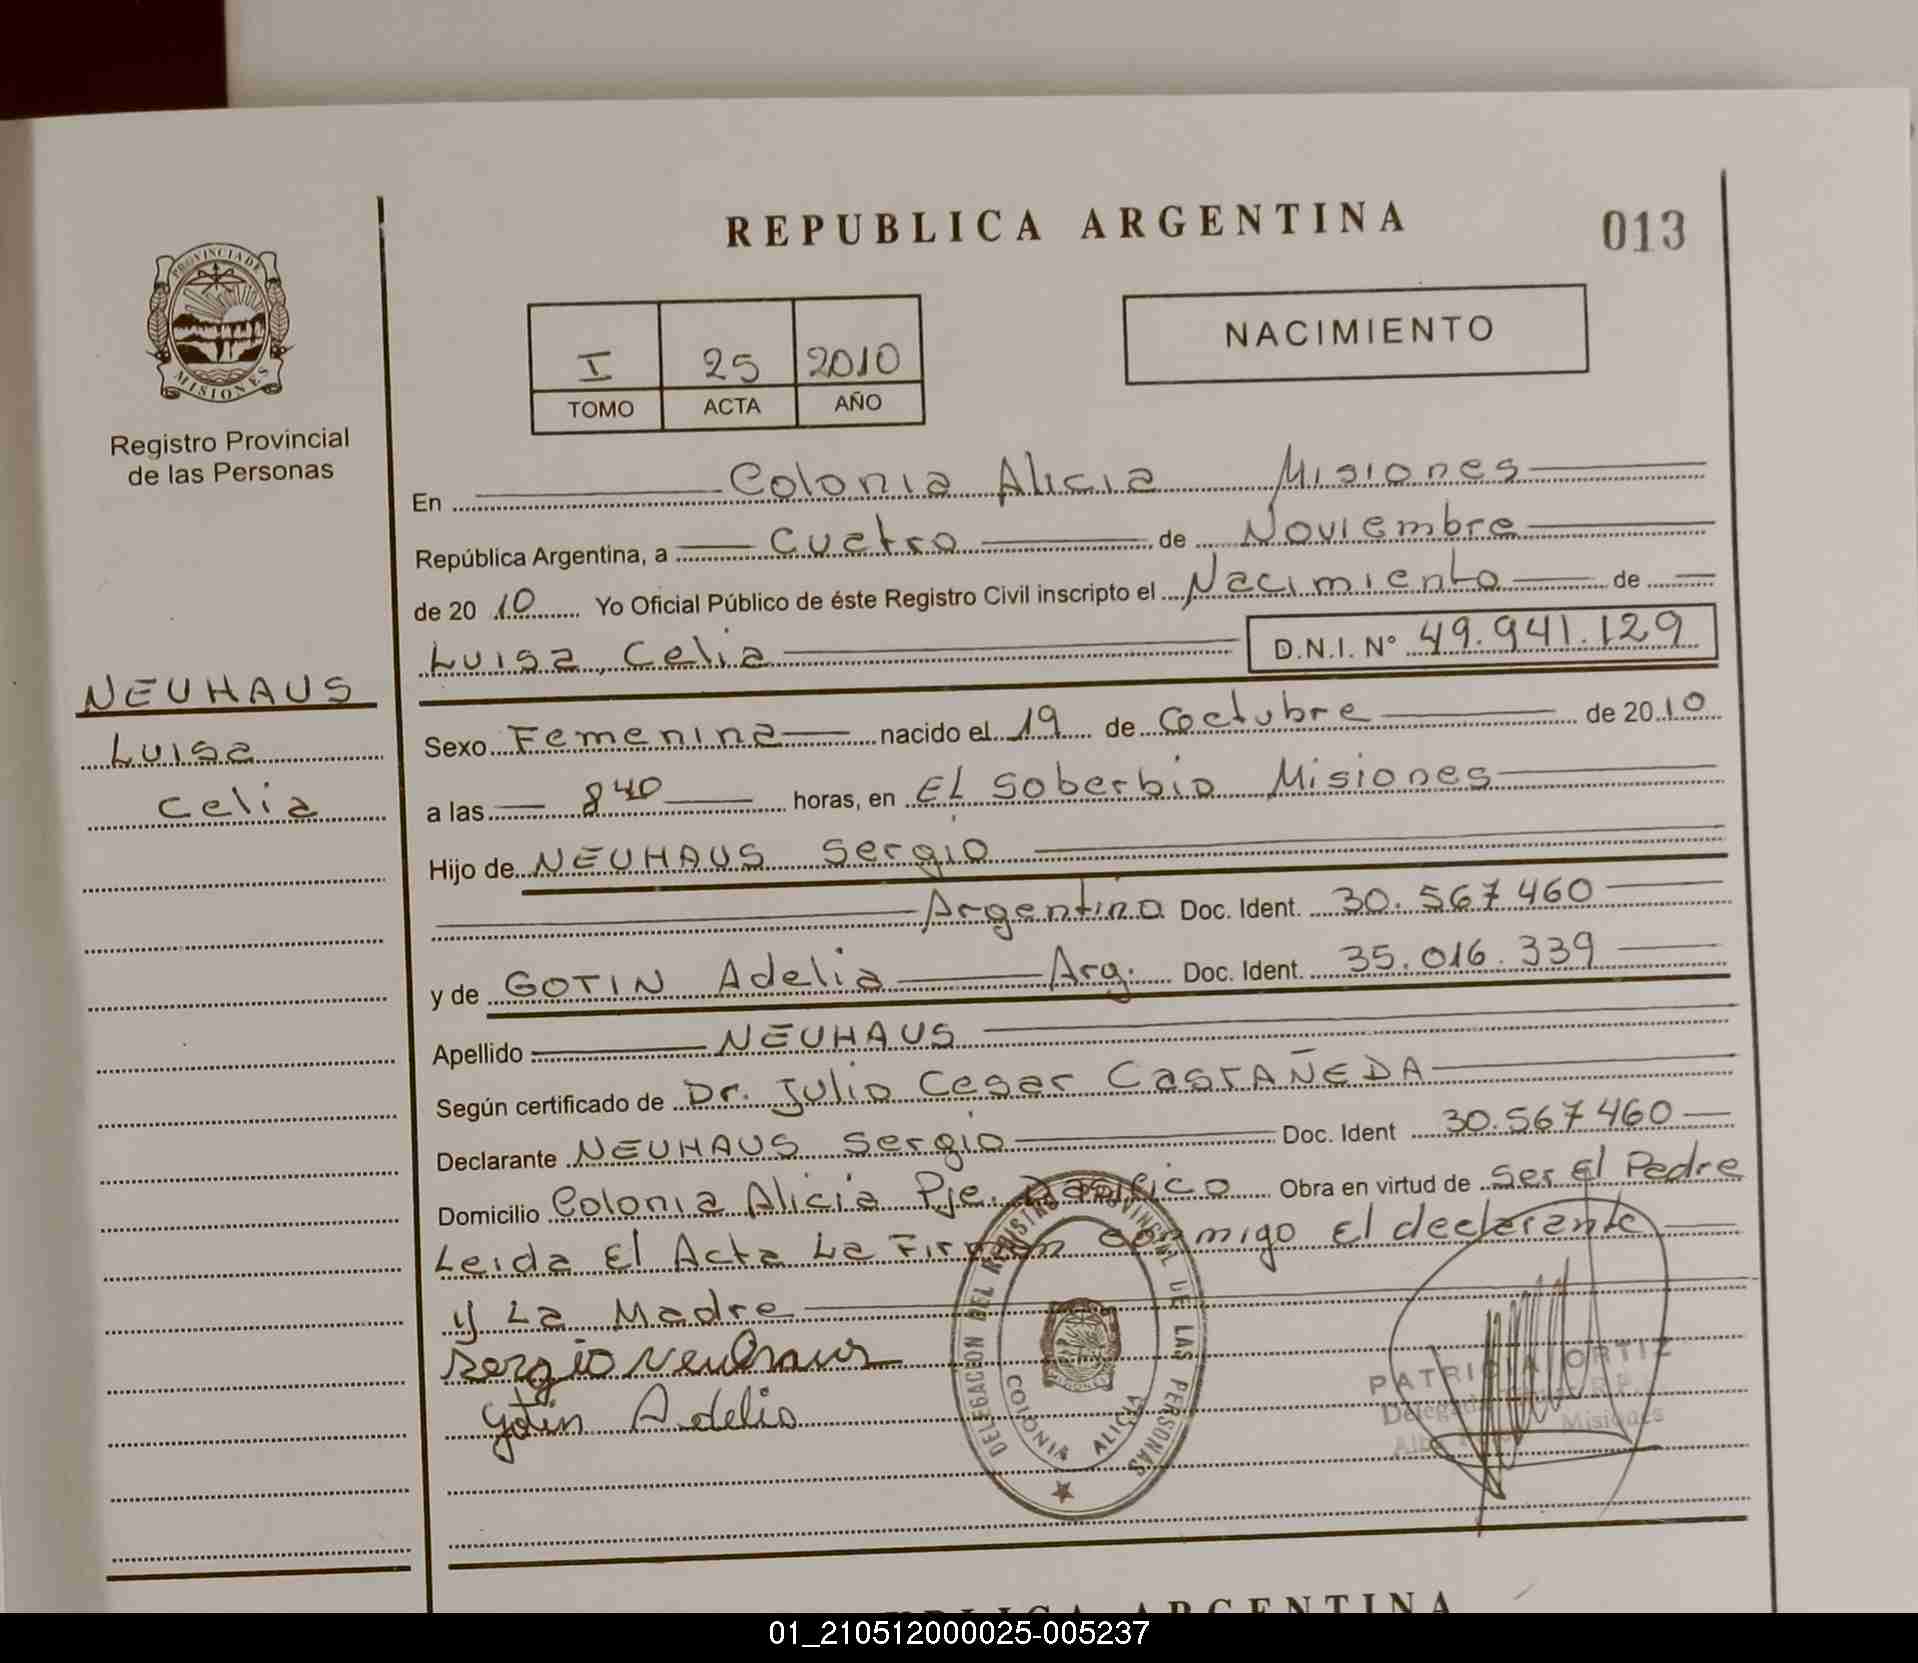 REPUBLICA ARGENTINA
013
PROVINCIA DE
MISIONES
Registro Provincial
de las Personas
NACIMIENTO
I 25 2010
TOMO ACTA AÑO
En Colonia Alicia Misiones
República Argentina, a Cuatro de Noviembre
de 20 10 Yo Oficial Público de éste Registro Civil inscripto el Nacimiento de
Luisa, Celia D.N.I. Nº 49.941.129
NEUHAUS
Luisa
Celia
Sexo Femenina nacido el 19 de Coctubre de 2010
a las 840 horas, en EL Soberbio Misiones
Hijo de NEUHAUS Sergio
Argentino Doc. Ident. 30.567460
y de GOTIN Adelia Arg. Doc. Ident. 35.016.339
Apellido NEUHAUS
Según certificado de Dr. Julio Cesar CASTAÑEDA
Declarante NEUHAUS Sergio Doc. Ident 30.567460
Domicilio Colonia Alicia Pje. Obra en virtud de Ser El Padre
Leida El Acta La Firman conmigo El declarante
y La Madre
Sergio Neuhaus
Gotin Adelia
DELEGACION DEL REGISTRO PROVINCIAL DE LAS PERSONAS
COLONIA ALICIA
MISIONES
PATRICIA ORTIZ
Misiones
REPUBLICA ARGENTINA
01_210512000025-005237